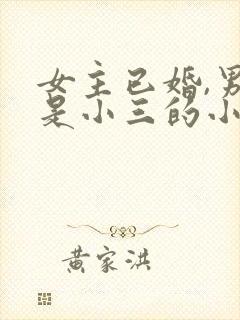 女主已婚,男
是小三的小
黄家洪